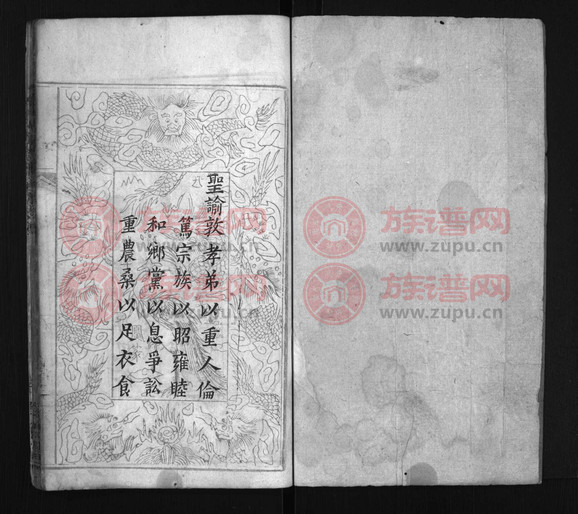 聖諭敦孝弟以重人倫
篤宗族以昭雍睦
和鄉黨以息爭訟
重農桑以足衣食
族谱网
www.zupu.cn
族谱网
www.zupu.cn
族谱网
www.zupu.cn
族谱网
www.zupu.cn